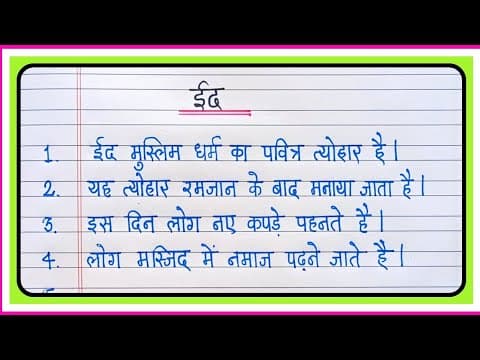 ईद
1. ईद मुस्लिम धर्म का पवित्र त्योहार है।
2. यह त्योहार रमजान के बाद मनाया जाता है।
3. इस दिन लोग नए कपड़े पहनते है।
4. लोग मस्जिद में नमाज पढ़ने जाते है।